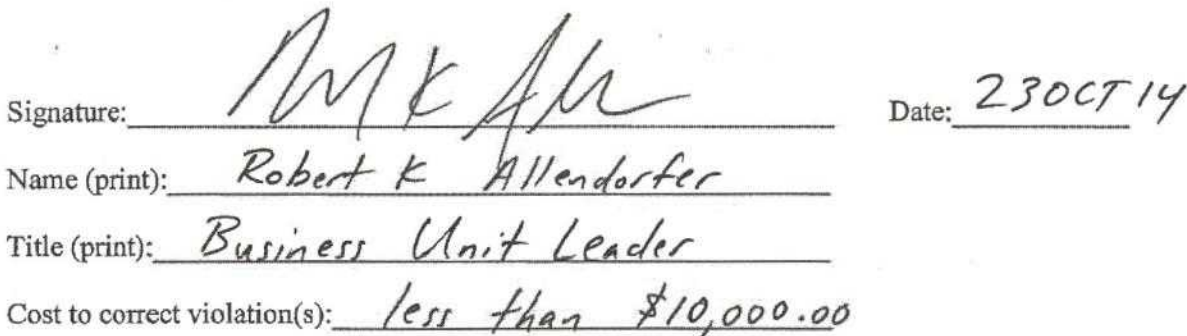 Signature: Date: 23OCT14
Name (print): Robert K Allendorfer
Title (print): Business Unit Leader
Cost to correct violation(s): less than $10,000.00